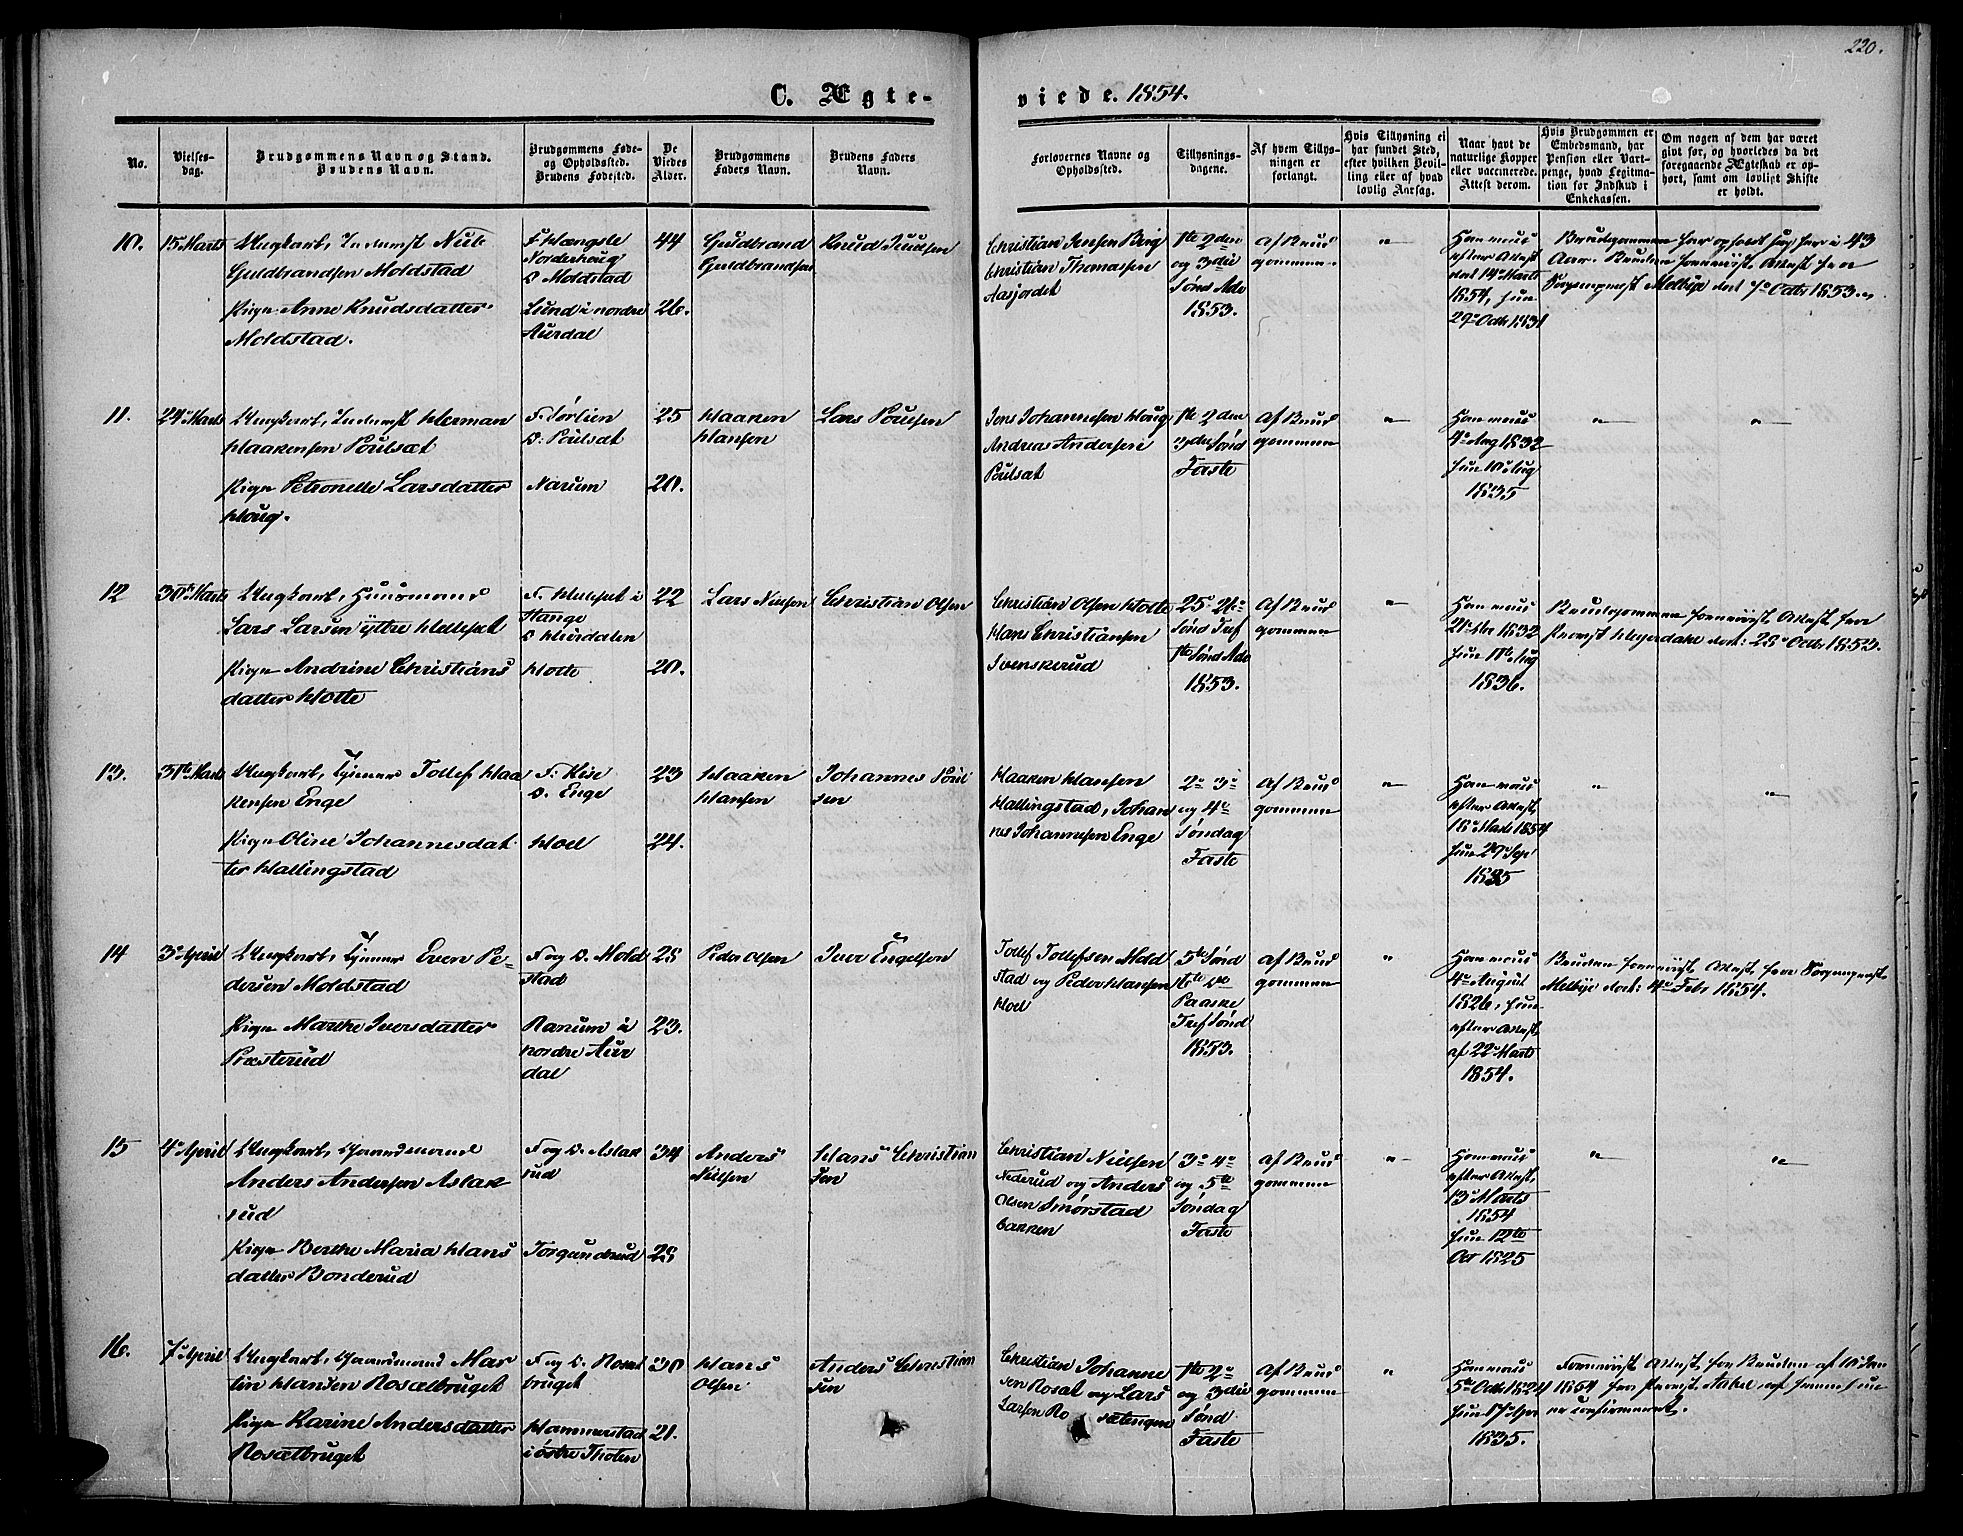 220.
C. Ægte-
viede. 1854.
No.
Vielses-
dag.
Brudgommens Navn og Stand.
Brudens Navn.
Brudgommens Føde-
og Opholdssted.
Brudens Fødested.
De
Viedes
Alder.
Brudgommens
Faders Navn.
Brudens Faders
Navn.
Forlovernes Navne og
Opholdssted.
Tillysnings-
dagene.
Af hvem Tillys-
ningen er
forlangt.
Hvis Tillysning ei
har fundet Sted,
efter hvilken Bevil-
ling eller af hvad
lovlig Aarsag.
Naar havt de
naturlige Kopper
eller vaccinerede.
Attest derom.
Hvis Brudgommen er
Embedsmand, har
Pension eller Vart-
penge, hvad Legitima-
tion for Indskud i
Enkekassen.
Om nogen af dem har været
givt før, og hvorledes da det
foregaaende Ægteskab er op-
hørt, samt om lovligt Skifte
er holdt.
10.
15 Marts
Ungkarl, Inderst
Guldbrandsen Moldstad
Pigen Anne Knudsdatter
Moldstad.
Norderhoug
O Moldstad
Lund i nordre
Aurdal
44
26.
Guldbrand
Guldbrandsen
Knud
Christian Jensen Berg
Christian Thomasen
Aasjordet
1ste 2den
og 3die
Sønd Adv
1853.
Af Brud
gommen
"
Han
efter Attest
dat 14 Marts
1854, hun
29 Octb 1831
Brudgommen har opholdt sig her i 43
Aar. Bruden Attest fra
Sorgenpræst Melbye dat 7 Octbr 1853.
11.
24 Marts
Ungkarl, Inderst Herman
Haakensen Poulsæt
Pigen Petronelle Larsdatter
Houg.
F. Sørlien
O: Poulsæt
Narum
25
20.
Haaken
Hansen
Lars Poulsen
Jens Johannesen Houg
Andreas Andersen
Poulsæt
1ste 2den
3die Sønd
Faste
Af Brud
gommen
"
Han
Aug 1832
hun 10 Aug
1835
"
"
12
30te Marts
Ungkarl, Huusmand
Lars Larsen ytre
Pigen Andrine Christians
datter Holte
F. i
Stange
O Hurdalen
Holte
22
20.
Lars Nielsen
Christian Olsen
Christian Olsen Holte
Hans Christiansen
Svenskerud
25 26
Sønd Tref
1ste Sønd Adv
1853.
Af Brud
gommen
"
Han
1832
hun 11te Aug
1836.
Brudgommen Attest fra
Provst Heyerdahl dat: 28 Octbr 1853.
13.
31te Marts
Ungkarl, Tjener Tollef Haa
kensen Enge
Pigen Oline Johannesdat
ter Hallingstad
F: Kise
O. Enge
Hoel
23
24.
Haaken
Hansen
Johannes Poul
sen
Haaken Hansen
Hallingstad, Johan
nes Johannesen Enge
2 3
og 4
Søndag
Faste
Af Brud
gommen
"
Han
efter Attest
18 Marts 1854
hun 29 Sep
1835
"
"
14
3 April
Ungkarl, Tjener Even Pe-
dersen Moldstad
Pigen Marthe Iversdatter
Præsterud
F og O. Mold
stad
Ranum i
nordre Aur
dal
28
23.
Peder Olsen
Iver Engelsen
Tollef Tollefsen Mold
stad og Peder Hansen
Hoel
5te Sønd
Paaske
Tref Sønd
1853.
Af Brud
gommen
"
Han
4 August
1826, hun
efter Attest
af 22 Marts
1854.
Bruden Attest fra Sorgenpræst
Melbye dat: 4 Febr 1854.
15
4 April
Ungkarl, Gaardmand
Anders Andersen Aslak
rud
Pigen Berthe Maria Hans
datter Bonderud
F og O. Aslak
rud
Torgundrud
34
28
Anders
Nielsen
Hans Christian
sen
Christian Nielsen
Nederud og Anders
Olsen Smørstad
bakken
3 4
og 5te
Søndag
Faste
Af Brud
gommen
"
Han
efter Attest
13 Marts
1854
hun 12te
Oct 1825
"
"
16.
7 April
Ungkarl, Gaardmand Mar
tin Hansen Rosætbruget
Pigen Karine Andersdatter
Rosætbruget
F og O. Rosæt
bruget
Hammerstad
i østre Thoten
30
21.
Hans
Olsen
Anders Christian
sen
Christian Johanne
sen Rosæt og Lars
Larsen Ro sætengen
1ste 2
og 3die
Sønd
Faste
Af Brud
gommen
"
Han
5 Octb 1824
hun 17
1835.
Attest for Bruden af 10 Jan
1854 fra Provst at hun
er confirmeret.